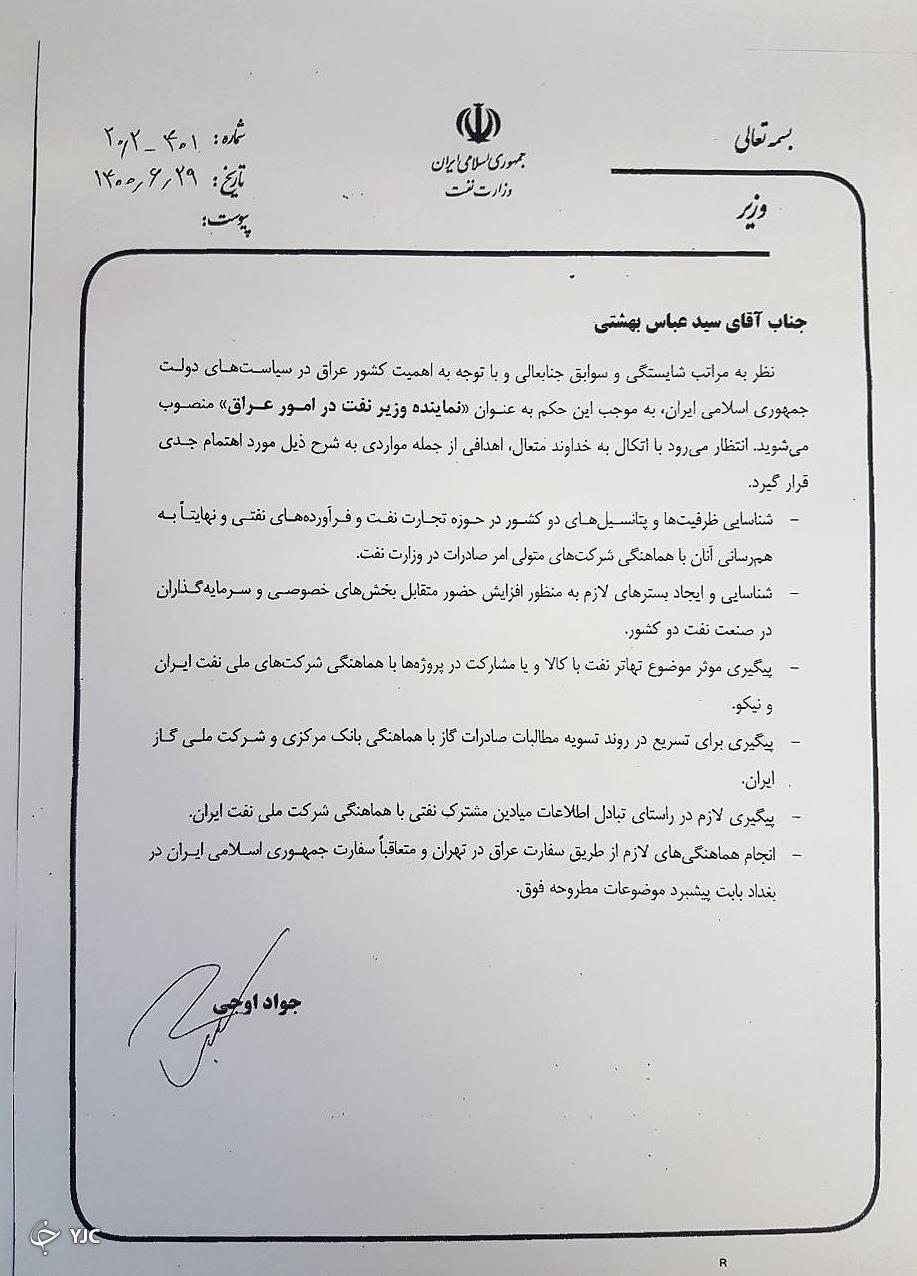 بسمه تعالی
وزیر
جمهوری اسلامی ایران
وزارت نفت
شماره: ۴۰۱ - ۲۰/۲
تاریخ: ۱۴۰۰/۶/۲۹
پیوست:
جناب آقای سید عباس بهشتی
نظر به مراتب شایستگی و سوابق جنابعالی و با توجه به اهمیت کشور عراق در سیاست‌های دولت
جمهوری اسلامی ایران، به موجب این حکم به عنوان «نماینده وزیر نفت در امور عراق» منصوب
می‌شوید. انتظار می‌رود با اتکال به خداوند متعال، اهدافی از جمله مواردی به شرح ذیل مورد اهتمام جدی
قرار گیرد.
- شناسایی ظرفیت‌ها و پتانسیل‌های دو کشور در حوزه تجارت نفت و فرآورده‌های نفتی و نهایتاً به
هم‌رسانی آنان با هماهنگی شرکت‌های متولی امر صادرات در وزارت نفت.
- شناسایی و ایجاد بسترهای لازم به منظور افزایش حضور متقابل بخش‌های خصوصی و سرمایه‌گذاران
در صنعت نفت دو کشور.
- پیگیری موثر موضوع تهاتر نفت با کالا و یا مشارکت در پروژه‌ها با هماهنگی شرکت‌های ملی نفت ایران
و نیکو.
- پیگیری برای تسریع در روند تسویه مطالبات صادرات گاز با هماهنگی بانک مرکزی و شرکت ملی گاز
ایران.
- پیگیری لازم در راستای تبادل اطلاعات میادین مشترک نفتی با هماهنگی شرکت ملی نفت ایران.
- انجام هماهنگی‌های لازم از طریق سفارت عراق در تهران و متعاقباً سفارت جمهوری اسلامی ایران در
بغداد بابت پیشبرد موضوعات مطروحه فوق.
جواد اوجی
YJC
R